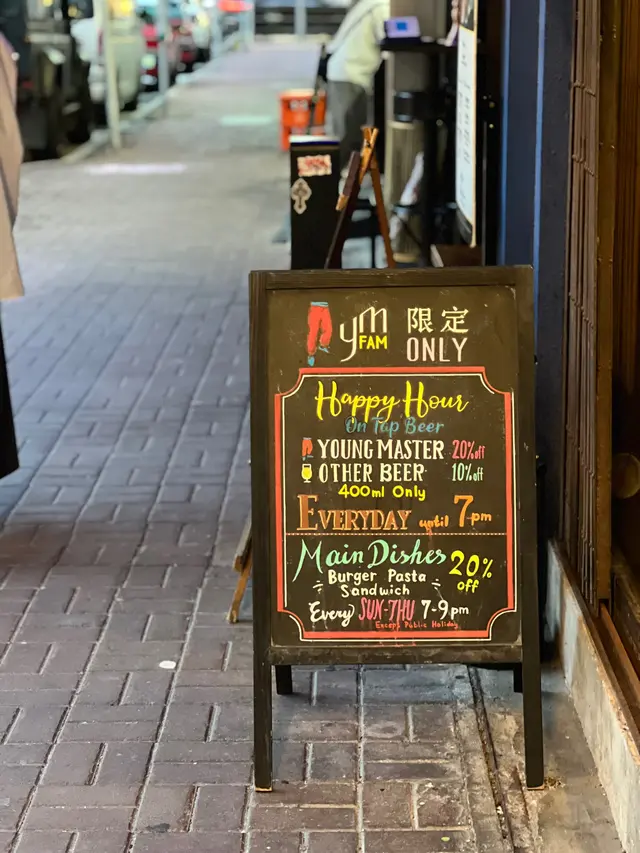 ym 限定
FAM ONLY
Happy Hour
On Tap Beer
YOUNG MASTER 20%off
OTHER BEER 10%off
400ml Only
EVERYDAY until 7pm
Main Dishes 20%
off
Burger Pasta
Sandwich
Every SUN-THU 7-9pm
Except Public Holiday